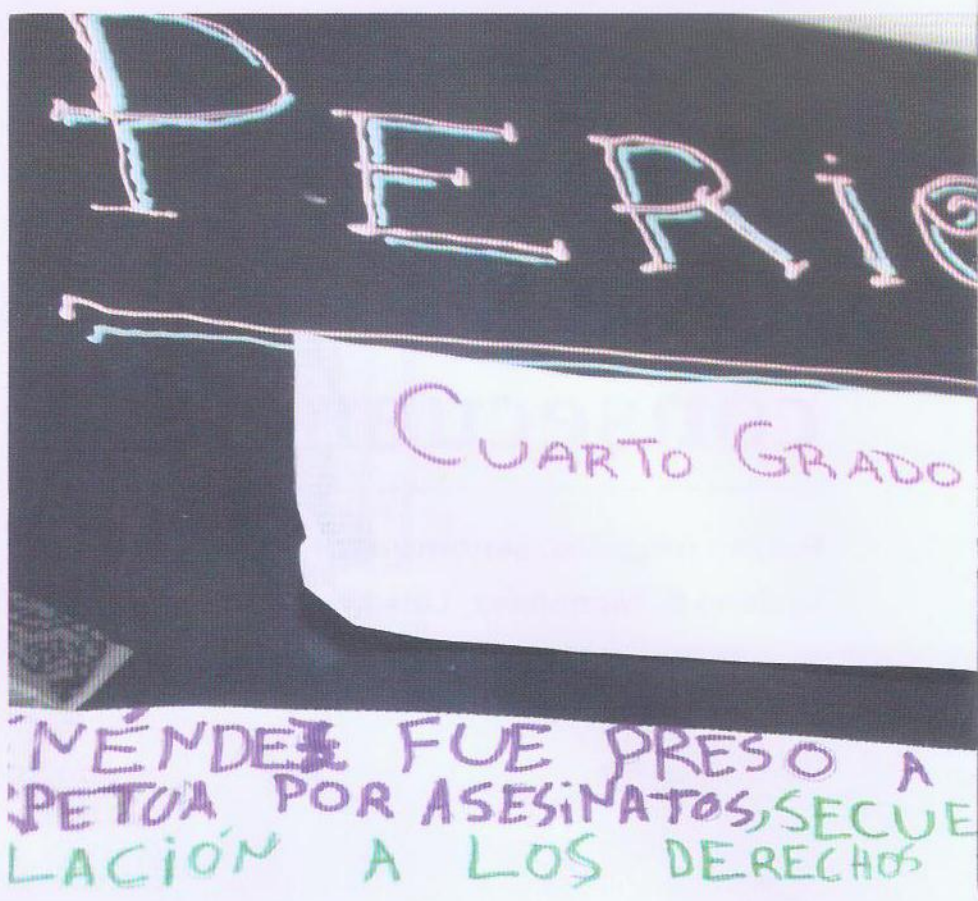 PERIO
CUARTO GRADO
ENÉNDEZ FUE PRESO A
RPETUA POR ASESINATOS, SECUE
LACIÓN A LOS DERECHOS